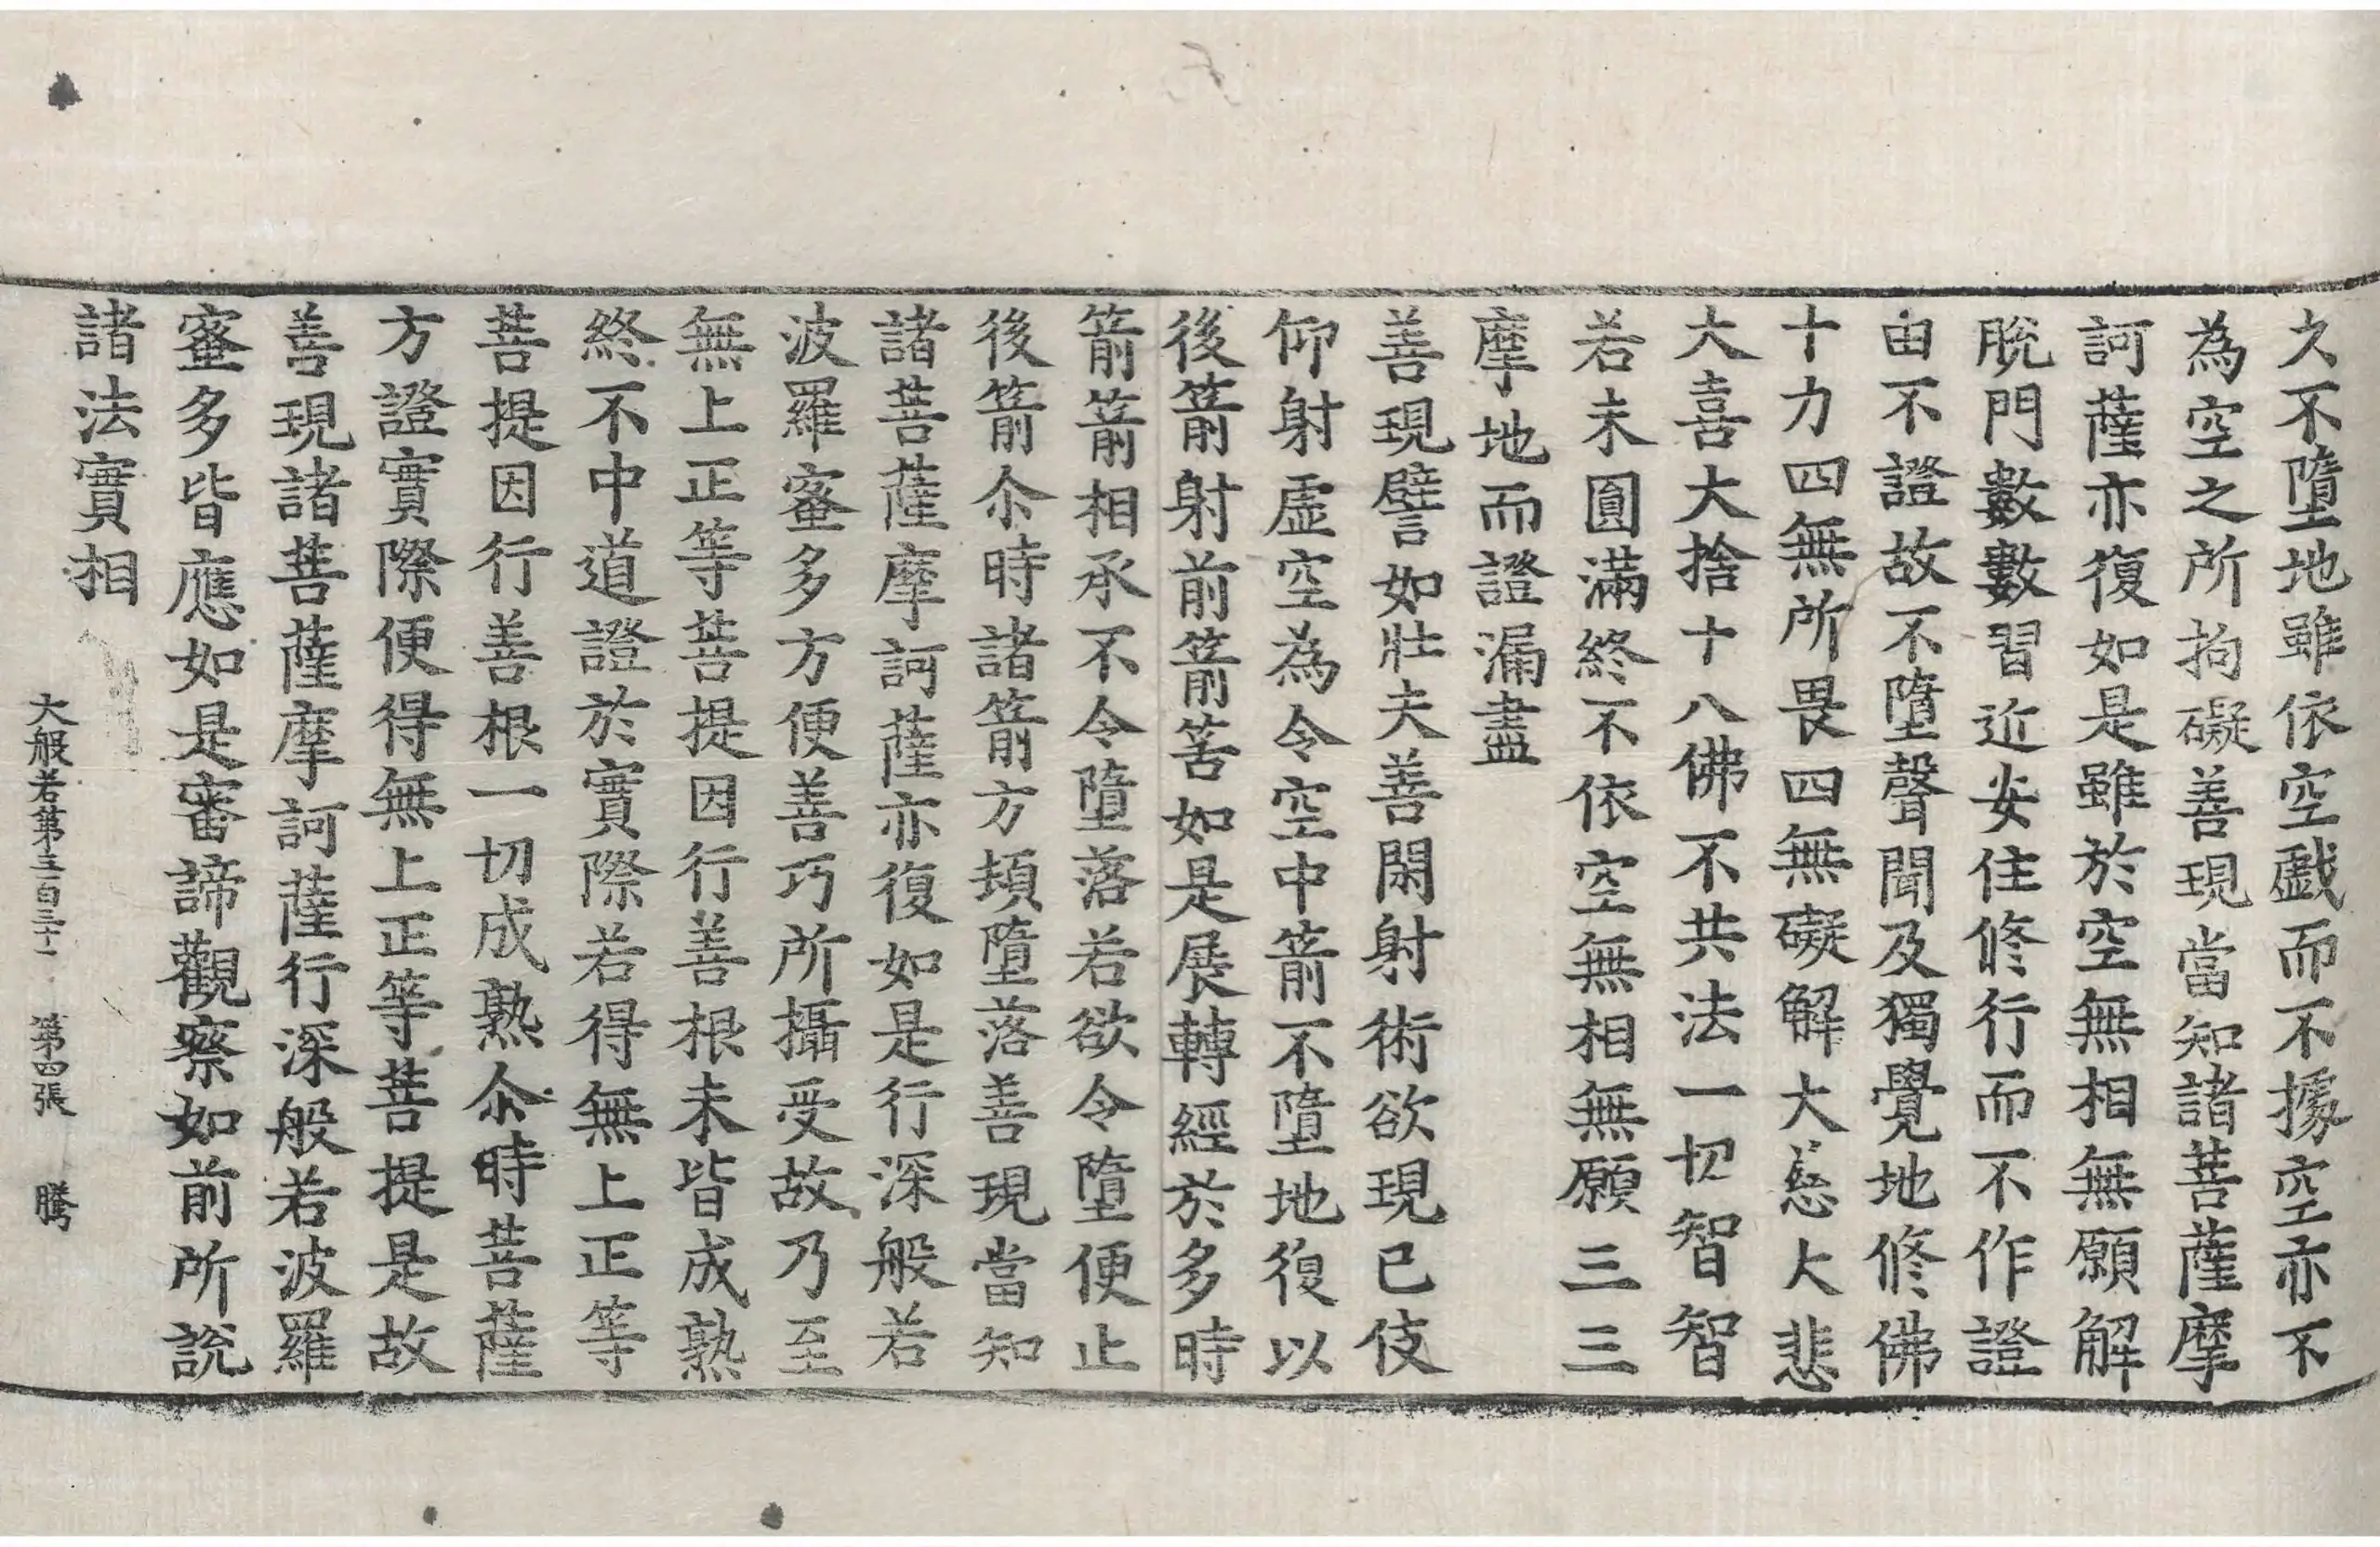 久不墮地雖依空戲而不據空亦不
為空之所拘礙善現當知諸菩薩摩
訶薩亦復如是雖於空無相無願解
脫門數數習近安住修行而不作證
由不證故不墮聲聞及獨覺地修佛
十力四無所畏四無礙解大慈大悲
大喜大捨十八佛不共法一切智智
若未圓滿終不依空無相無願三三
摩地而證漏盡
善現譬如壯夫善閑射術欲現已伎
仰射虛空為令空中箭不墮地復以
後箭射前箭筈如是展轉經於多時
箭箭相承不令墮落若欲令墮便止
後箭尒時諸箭方頓墮落善現當知
諸菩薩摩訶薩亦復如是行深般若
波羅蜜多方便善巧所攝受故乃至
無上正等菩提因行善根未皆成熟
終不中道證於實際若得無上正等
菩提因行善根一切成熟尒時菩薩
方證實際便得無上正等菩提是故
善現諸菩薩摩訶薩行深般若波羅
蜜多皆應如是審諦觀察如前所說
諸法實相
大般若第三百三十一 第四張 騰